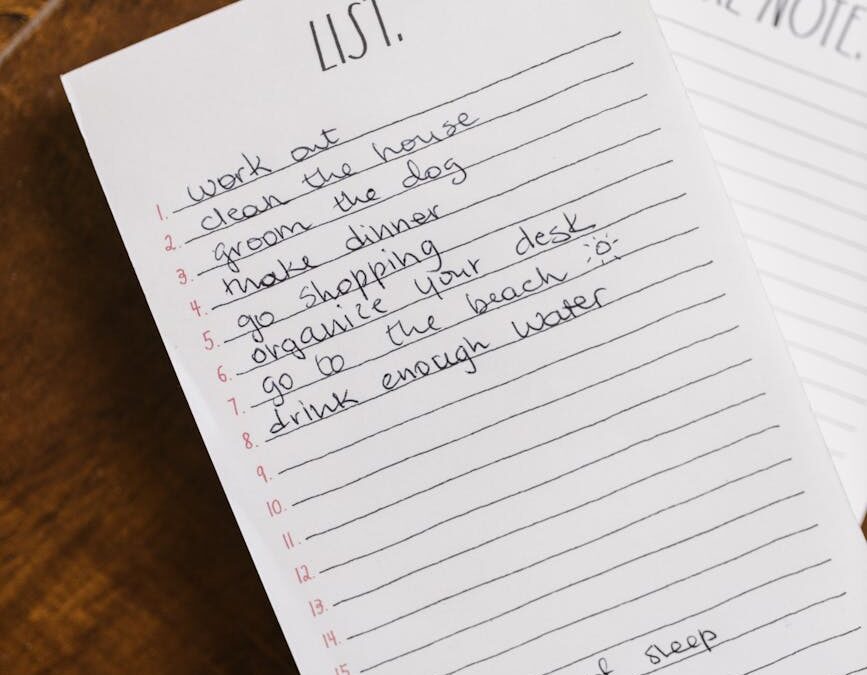 LIST.
KE NOTE.
1. work out
2. clean the house
3. groom the dog
4. make dinner
5. go shopping
6. organize your desk
7. go to the beach
8. drink enough water
9.
10.
11.
12.
13.
14.
15
of sleep